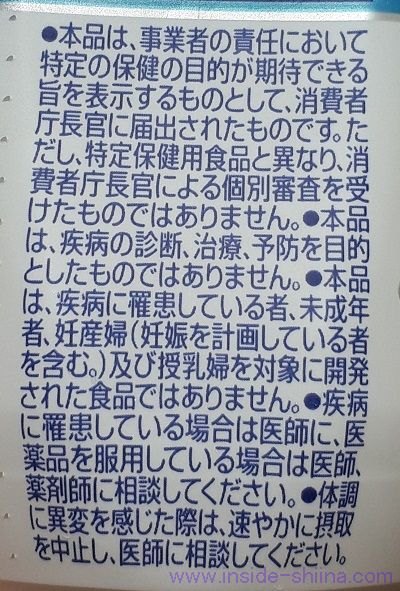 ●本品は、事業者の責任において
特定の保健の目的が期待できる
旨を表示するものとして、消費者
庁長官に届出されたものです。た
だし、特定保健用食品と異なり、消
費者庁長官による個別審査を受
けたものではありません。●本品
は、疾病の診断、治療、予防を目的
としたものではありません。●本品
は、疾病に罹患している者、未成年
者、妊産婦(妊娠を計画している者
を含む。)及び授乳婦を対象に開発
された食品ではありません。●疾病
に罹患している場合は医師に、医
薬品を服用している場合は医師、
薬剤師に相談してください。●体調
に異変を感じた際は、速やかに摂取
を中止し、医師に相談してください。
www.inside-shiina.com